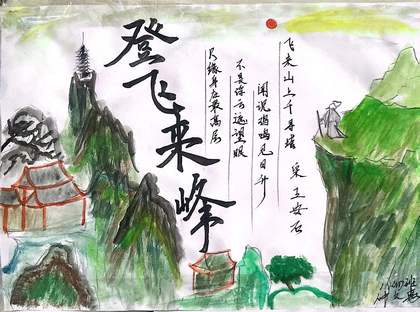 登飞来峰
宋 王安石
飞来山上千寻塔
闻说鸡鸣见日升
不畏浮云遮望眼
只缘身在最高层